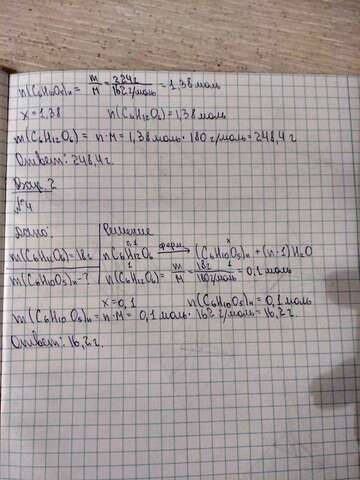 n(C₆H₁₀O₅)ₙ = m/M = 224г/162г/моль = 1,38 моль
x = 1,38 n(C₆H₁₂O₆) = 1,38 моль
m(C₆H₁₂O₆) = n·M = 1,38 моль · 180 г/моль = 248,4 г
Ответ: 248,4 г.
Вар. 2
№4
Дано: Решение
m(C₆H₁₂O₆) = 18г nC₆H₁₂O₆ ферм. → (C₆H₁₀O₅)ₙ + (n-1)H₂O
m(C₆H₁₀O₅)ₙ - ? n(C₆H₁₂O₆) = m/M = 18г/180г/моль = 0,1 моль
x = 0,1 n(C₆H₁₀O₅)ₙ = 0,1 моль
m(C₆H₁₀O₅)ₙ = n·M = 0,1 моль · 162 г/моль = 16,2 г.
Ответ: 16,2 г.